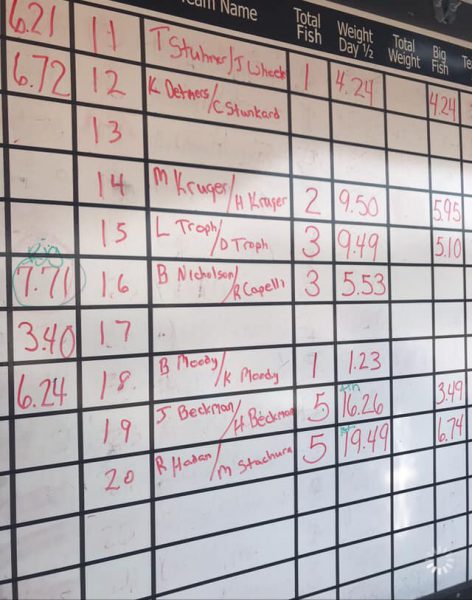 Team Name Total Fish Weight Day ½ Total Weight Big Fish
6.21 11 T Stuhner/J 1 4.24 4.24
6.72 12 K Detmers/C Stunkard
13
14 M Kruger/H Kruger 2 9.50 5.95
15 L Troph/D Troph 3 9.49 5.10
7.71 16 B Nicholson/R Capelli 3 5.53
3.40 17
6.24 18 B Moody/K Moody 1 1.23
19 J Beckman/H Beckman 5 16.26 3.49
20 R Hadan/M Stachura 5 19.49 6.74